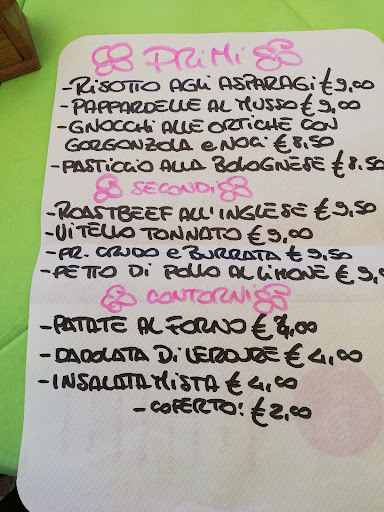 PRIMI
-RISOTTO AGLI ASPARAGI €9,00
-PAPPARDELLE AL MUSSO €9,00
-GNOCCHI ALLE ORTICHE CON
GORGONZOLA e NOCI €8.50
-PASTICCIO ALLA BOLOGNESE €8.50
SECONDI
-ROASTBEEF ALL'INGLESE €9,50
-VITELLO TONNATO €9,00
-PR. CRUDO e BURRATA €9,50
-PETTO DI POLLO AL LIMONE €9,
CONTORNI
-PATATE AL FORNO €4,00
-DADOLATA DI VERDURE €4,00
-INSALATA MISTA €4,00
-COPERTO: €2,00